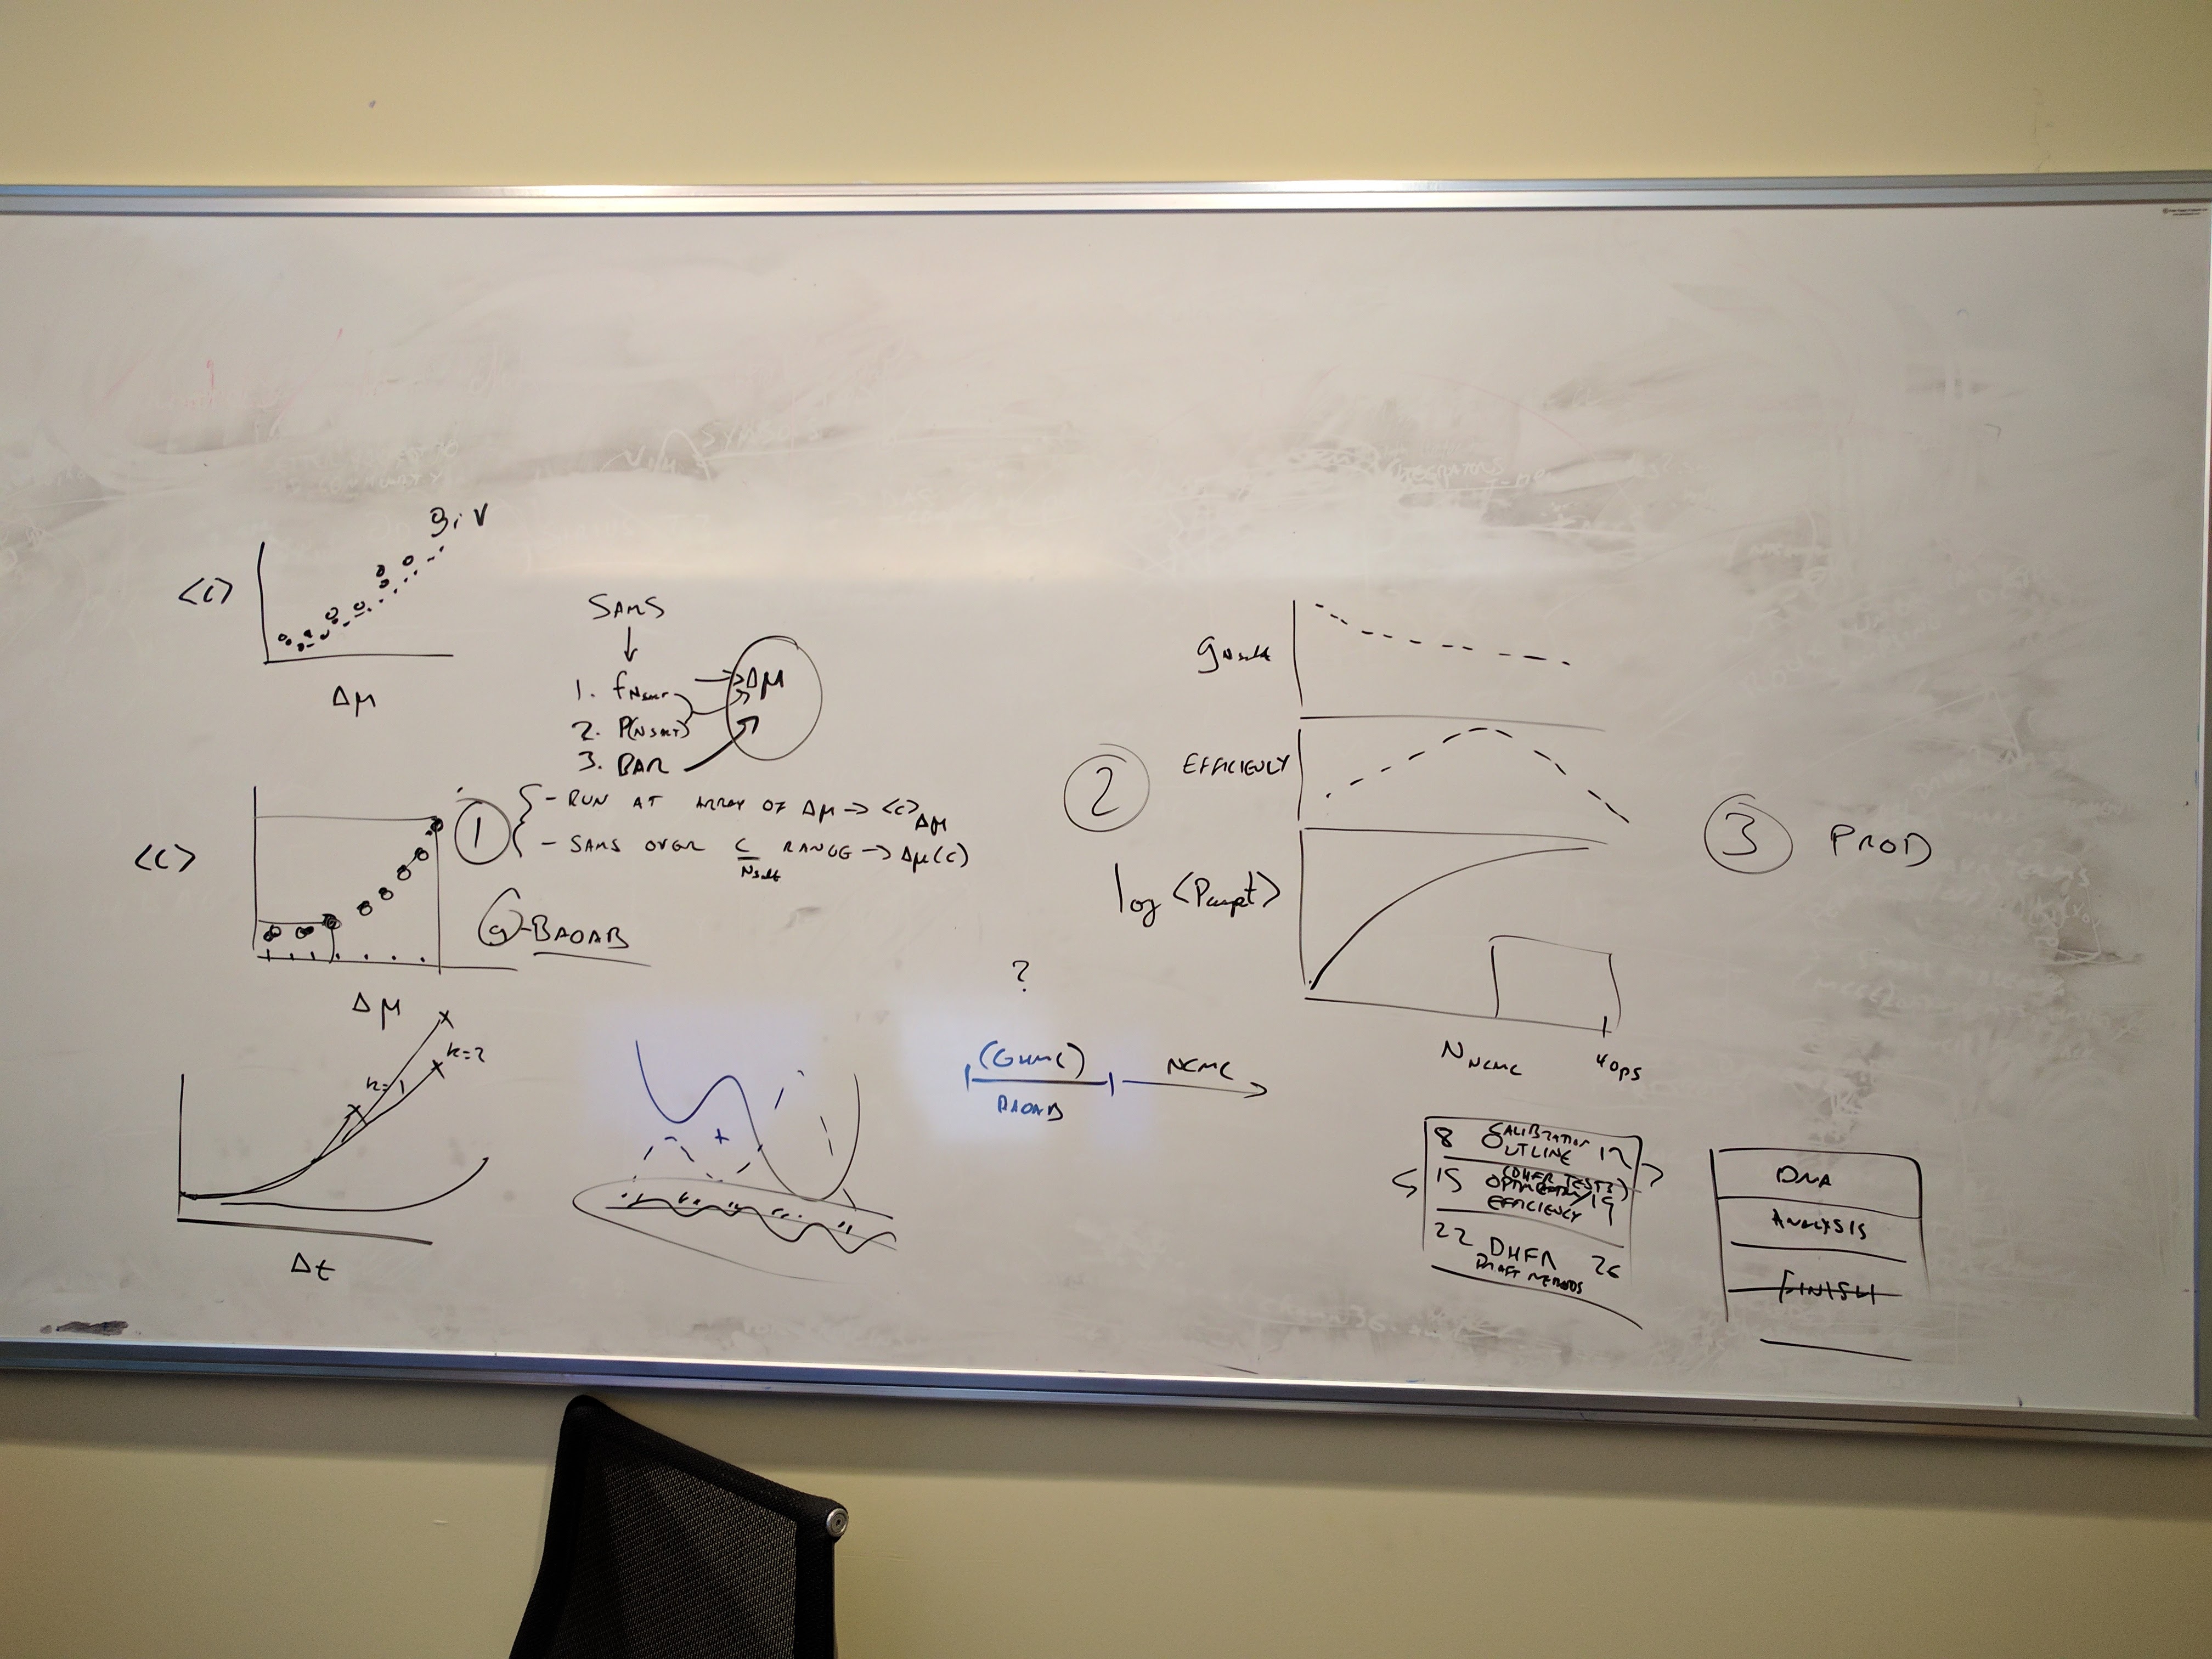 <c>
Δμ
SAMS
1. f_Nsalt
2. P(Nsalt)
3. BAR
Δμ
<c>
Δμ
1
- RUN AT ARRAY OF Δμ → <c>Δμ
- SAMS OVER C RANGE → Δμ(c)
Nsalt
g-BAOAB
k=1
k=2
Δt
+
?
(GHMC)
BAOAB
NCMC
2
g_Nsalt
EFFICIENCY
log <Paccpt>
N_NCMC
40ps
3 PROD
8 CALIBRATION OUTLINE 12
(DHFR TESTS)
15 19
EFFICIENCY
22 DHFR 26
DRAFT METHODS
DNA
ANALYSIS
FINISH